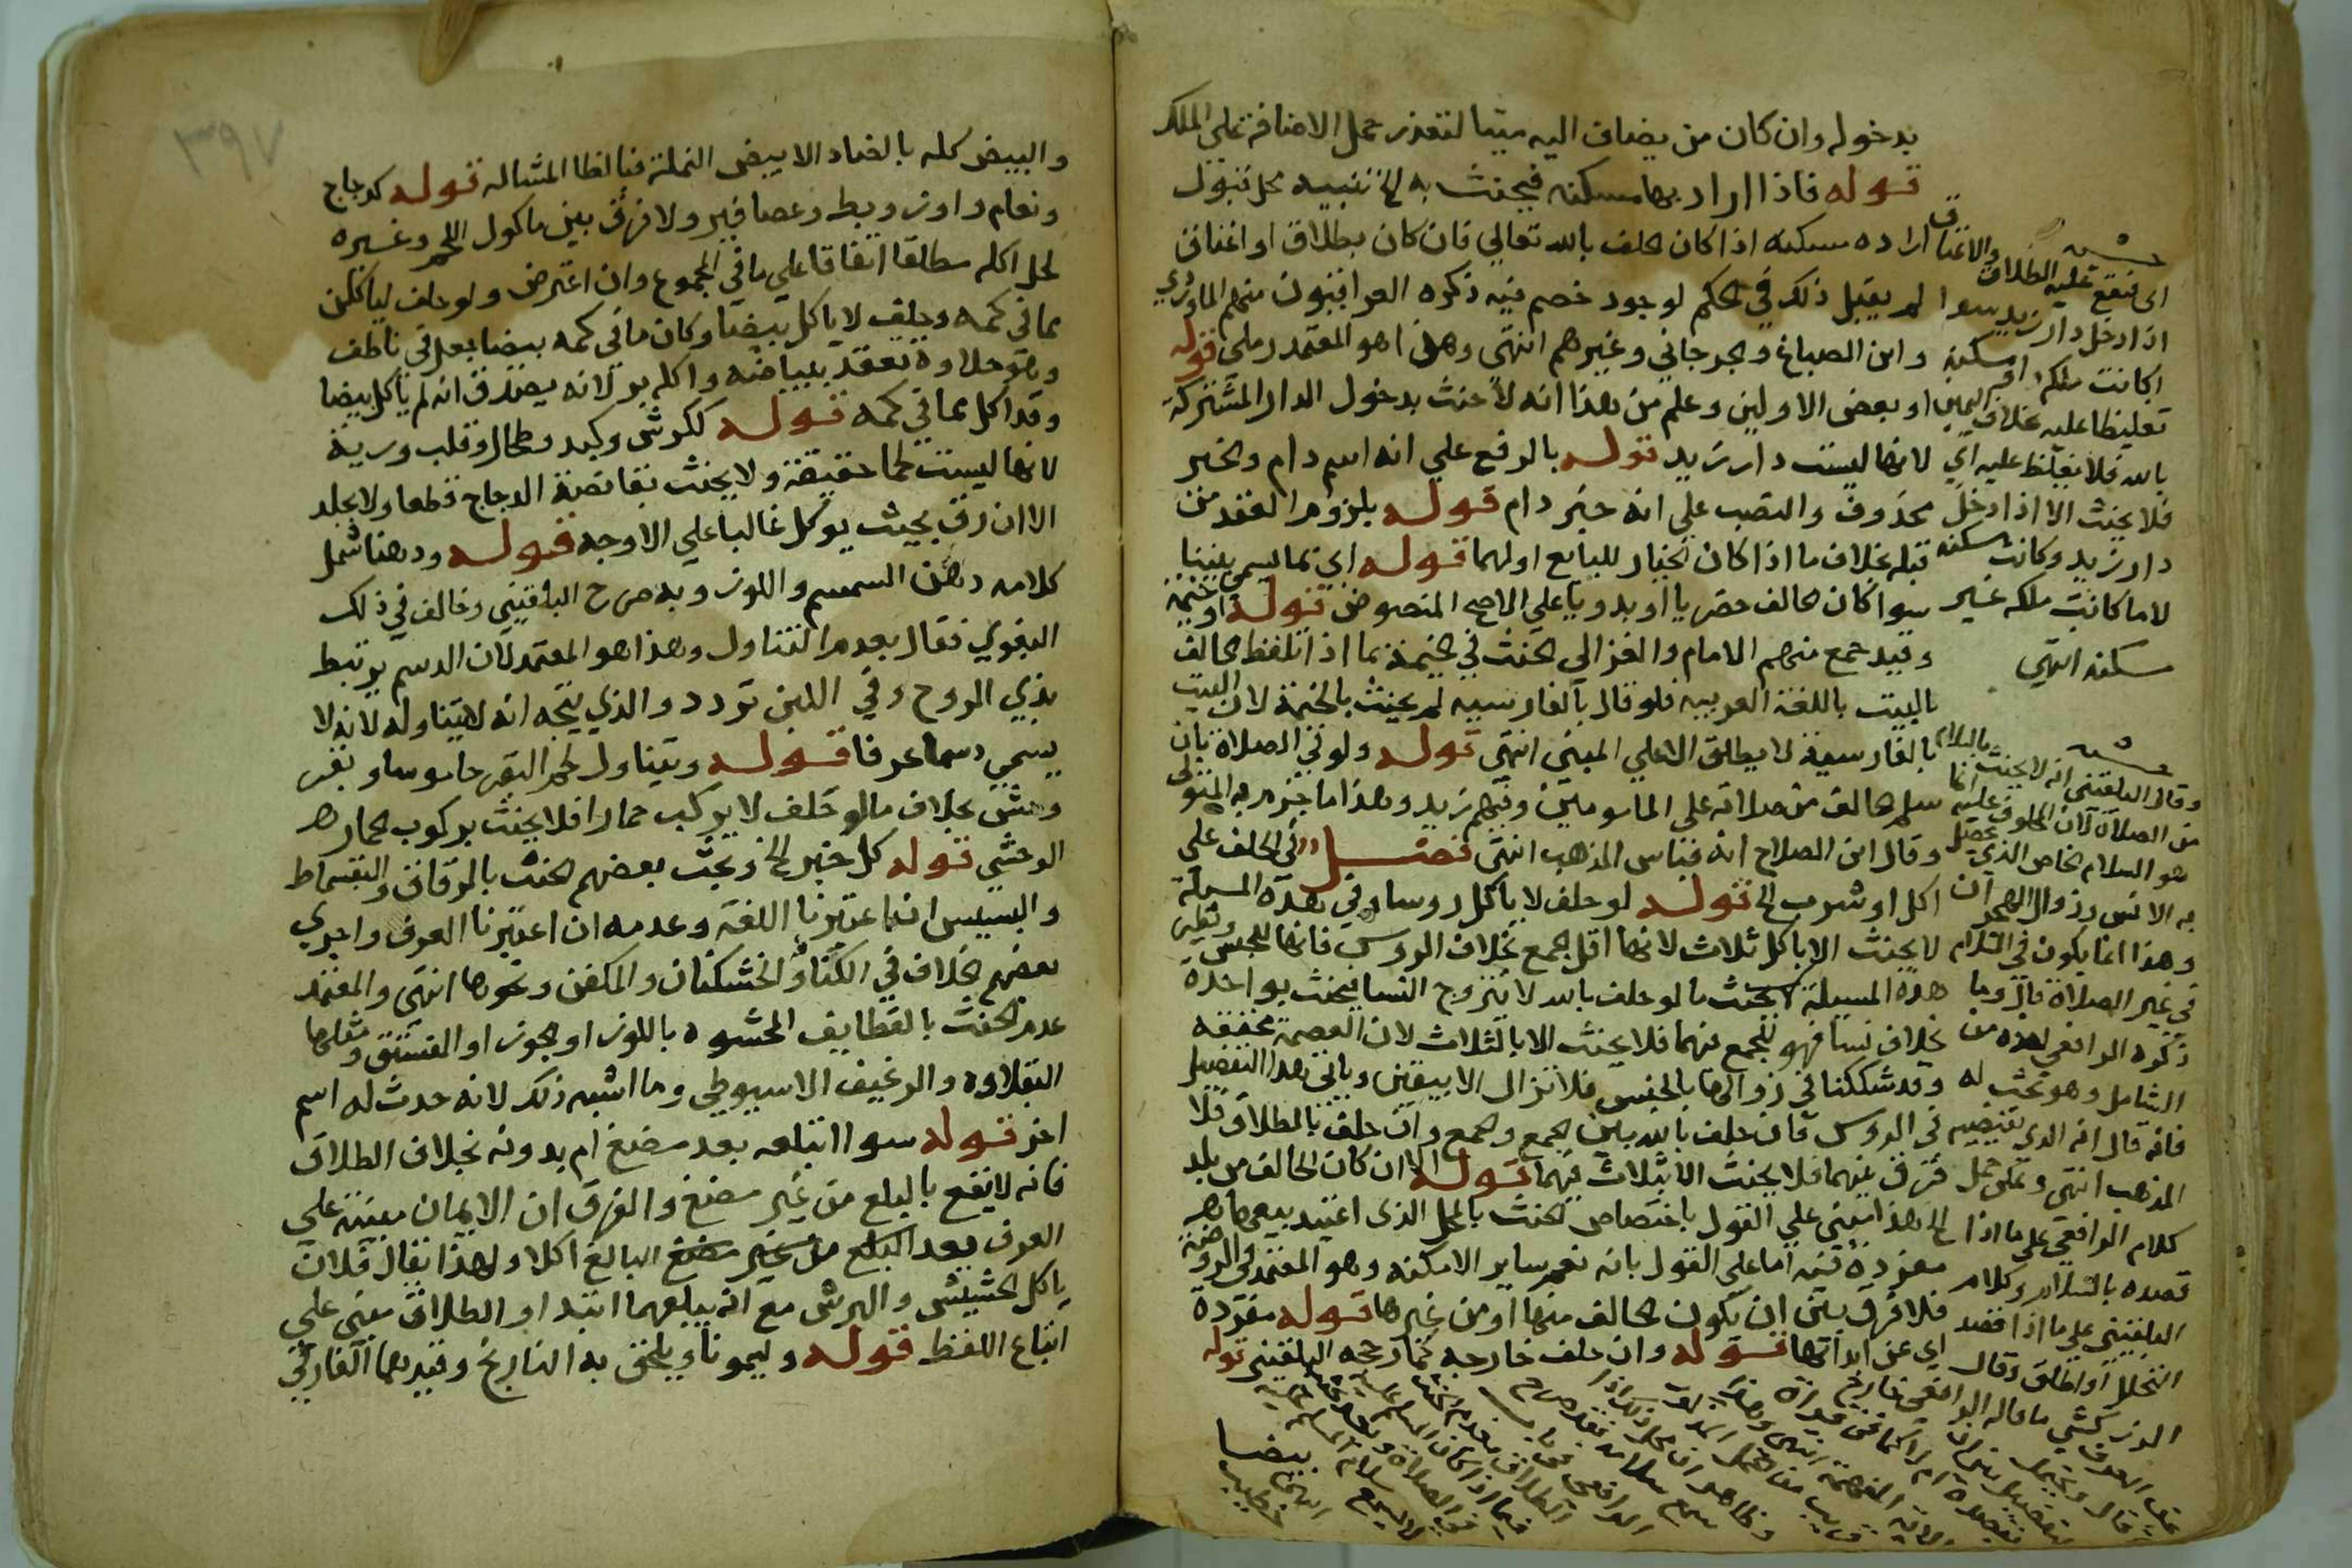 بدخوله وان كان من يضاف اليه ميتا لتعذر حمل الاضافة على الملك
قوله فاذا اراد بها مسكنه فيحنث به الخ تنبيه محل قبول
ارادة مسكنه اذا كان الحلف بالله تعالي فان كان بطلاق او اعتاق
لم يقبل ذلك في الحكم لوجود خصم فيه ذكره العراقيون منهم الماوردي
وابن الصباغ والجرجاني وغيرهم انتهى وهذا هو المعتمد رملى قوله
او بعض الاولين وعلم من هذا انه لا حنث بدخول الدار المشتركة
لانها ليست دار زيد قوله بالرفع علي انه اسم دام والخبر
محذوف والنصب علي انه خبر دام قوله بلزوم العقد من
قبله بخلاف ما اذا كان الخيار للبايع او لهما قوله اي مما يسمى بيتا
سوا كان الحالف حضريا او بدويا علي الاصح المنصوص قوله او خيمة
وقيد جمع منهم الامام والغزالي الحنث في الخيمة بما اذا تلفظ الحالف
بالبيت باللغة العربيه فلو قال بالفارسيه لم يحنث بالخيمة لان البيت
بالفارسية لا يطلق الا علي المبنى انتهى قوله ولو في الصلاة بان
سلم الحالف من صلاته علي المامومين وفيهم زيد وهذا ما جزم به المتولى
وقال ابن الصلاح انه قياس المذهب انتهى فصل في الحلف علي
اكل او شرب الخ قوله لو حلف لا ياكل روسا وفي هذه المسيلة
لا يحنث الا باكل ثلاث لانها اقل الجمع بخلاف الروس فانها للجنس ونظير
هذه المسيلة لا يحنث ما لو حلف بالله لا يتزوج النسا فيحنث بواحدة
بخلاف نسا فهو للجمع فيهما فلا يحنث الا بالثلاث لان العصمة محققة
وقد شككنا في زوالها بالجنس فلا تزال الا بيقين وياتى هذا التفصيل
في الروس فان حلف بالله بين الجمع والجمع وان حلف بالطلاق فلا
فرق بينهما فلا يحنث الا بثلاث فيهما قوله الا ان كان الحالف من بلد
الخ هذا مبني علي القول باختصاص الحنث بالمحل الذي اعتيد بيعها
مفردة فيه اما على القول بانه نعم ساير الامكنه وهو المعتمد في الروضة
فلا فرق بين ان يكون الحالف منها او من غيرها قوله مفردة
اي عن ابدانها قوله وان حلف خارجه كما رجحه البلقيني قوله
بيضا
اى فيقع عليه الطلاق والاعتاق
اذا دخل دار زيد سوا
اكانت ملكه او مسكنه
تغليظا عليه بخلاف اليمين
بالله فلا يغلظ عليه اي
فلا يحنث الا اذا دخل
دار زيد وكانت مسكنه
لا ما كانت ملكه غير
سكنه انتهي
وقال البلقيني انه لا يحنث بالسلام
من الصلاة لان المحلوف عليه انما
هو السلام الخاص الذي يحصل
به الانس وزوال الهجران
وهذا انما يكون في السلام
في غير الصلاة قال وما
ذكره الرافعى اخذه من
الشامل وهو بحث له
فانه قال انه الذي يقتضيه
المذهب انتهى ويمكن حمل
كلام الرافعي على ما اذا
قصده بالسلام وكلام
البلقيني علي ما اذا قصد
التحلل او اطلق وقال
الزركشي ما قاله الرافعي
والبيض كله بالضاد الا بيض النملة فبالظا المشاله قوله كدجاج
ونعام واوز وبط وعصافير ولا فرق بين ماكول اللحم وغيره
لحل اكله مطلقا اتفاقا علي ما في المجموع وان اعترض ولو حلف لياكلن
مما في كمه وحلف لا ياكل بيضا وكان ما في كمه بيضا يعمل في ناطف
وهو حلاوة تعقد ببياضه واكله بر لانه يصدق انه لم ياكل بيضا
وقد اكل مما في كمه قوله ككرش وكبد وطحال وقلب ورية
لانها ليست لحما حقيقة ولا يحنث بقانصة الدجاج قطعا ولا بجلد
الا ان رق بحيث يوكل غالبا علي الاوجه قوله ودهنا شمل
كلامه دهن السمسم واللوز وبه صرح البلقيني وخالف في ذلك
البغوي فقال بعدم التناول وهذا هو المعتمد لان الدسم يرتبط
بذي الروح وفي اللبن تردد والذي يتجه انه لا يتناوله لانه لا
يسمي دسما عرفا قوله ويتناول لحم البقر جاموسا وبقر
وحش بخلاف ما لو حلف لا يركب حمارا فلا يحنث بركوب الحمار
الوحشي قوله كل خبز الخ وبحث بعضهم الحنث بالرقاق والبقسماط
والبسيس ان اعتبرنا اللغة وعدمه ان اعتبرنا العرف واجري
بعضهم الخلاف في الكنافة والخشكنان والمكفن ونحوها انتهى والمعتمد
عدم الحنث بالقطايف المحشوه باللوز او الجوز او الفستق ومثلها
البقلاوه والرغيف الاسيوطي وما اشبه ذلك لانه حدث له اسم
اخر قوله سوا ابتلعه بعد مضغ ام بدونه بخلاف الطلاق
فانه لا يقع بالبلع من غير مضغ والفرق ان الايمان مبنيه علي
العرف يعد البلع من غير مضغ البالغ اكلا ولهذا يقال فلان
ياكل الحشيش والبرش مع انه يبلعهما ابتدا والطلاق مبني علي
ايقاع اللفظ قوله وليمونا ويلحق به النارنج وقيدهما الفارقي
٣٩٧